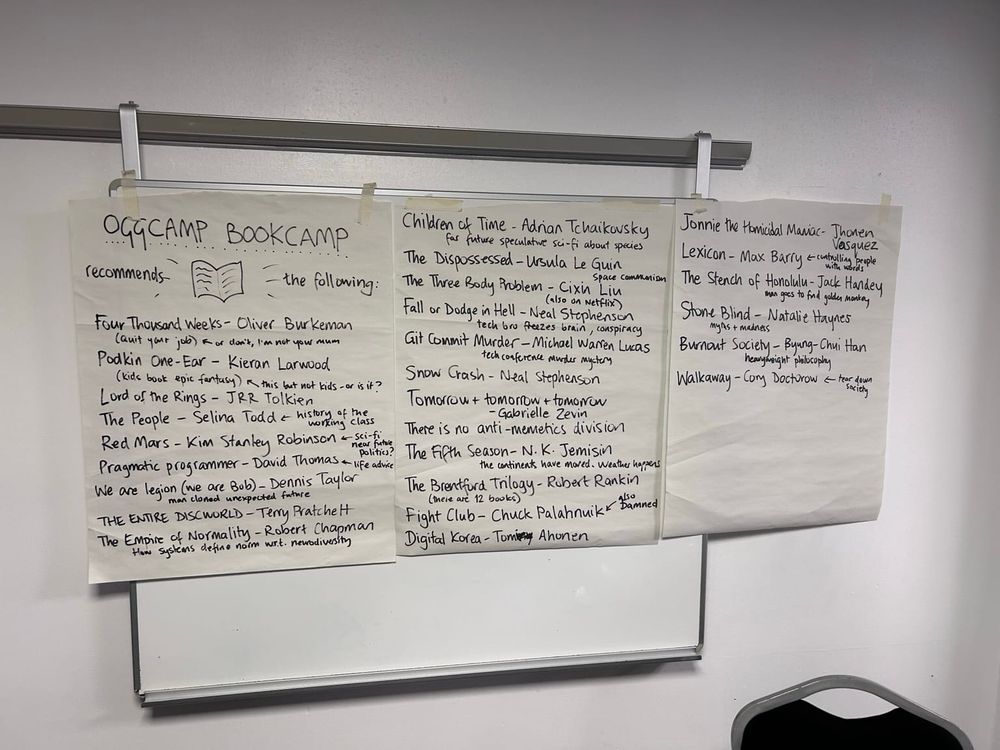 OGGCAMP BOOKCAMP
recommends the following:
Four Thousand Weeks - Oliver Burkeman
(Quit your job) ← or don't, I'm not your mum
Podkin One-Ear - Kieran Larwood
(kids book epic fantasy) ← this but not kids - or is it?
Lord of the Rings - JRR Tolkien
The People - Selina Todd ← history of the
working class
Red Mars - Kim Stanley Robinson ← sci-fi
near future
politics?
Pragmatic programmer - David Thomas ← life advice
We are legion (we are Bob) - Dennis Taylor
man cloned unexpected future
THE ENTIRE DISCWORLD - Terry Pratchett
The Empire of Normality - Robert Chapman
How systems define norm w.r.t. neurodiversity
Children of Time - Adrian Tchaikovsky
far future speculative sci-fi about species
The Dispossessed - Ursula Le Guin
space communism
The Three Body Problem - Cixin Liu
(also on Netflix)
Fall or Dodge in Hell - Neal Stephenson
tech bro freezes brain, conspiracy
Git Commit Murder - Michael Warren Lucas
tech conference murder mystery
Snow Crash - Neal Stephenson
Tomorrow + tomorrow + tomorrow
- Gabrielle Zevin
There is no anti-memetics division
The Fifth Season - N.K. Jemisin
the continents have moved. Weather happens
The Brentford Trilogy - Robert Rankin
(there are 12 books)
Fight Club - Chuck Palahnuik ← also
Damned
Digital Korea - Tomi Ahonen
Jonnie the Homicidal Maniac - Jhonen
Vasquez
Lexicon - Max Barry ← controlling people
with words
The Stench of Honolulu - Jack Handey
man goes to find golden monkey
Stone Blind - Natalie Haynes
myths + madness
Burnout Society - Byung-Chul Han
heavyweight philosophy
Walkaway - Cory Doctorow ← tear down
society